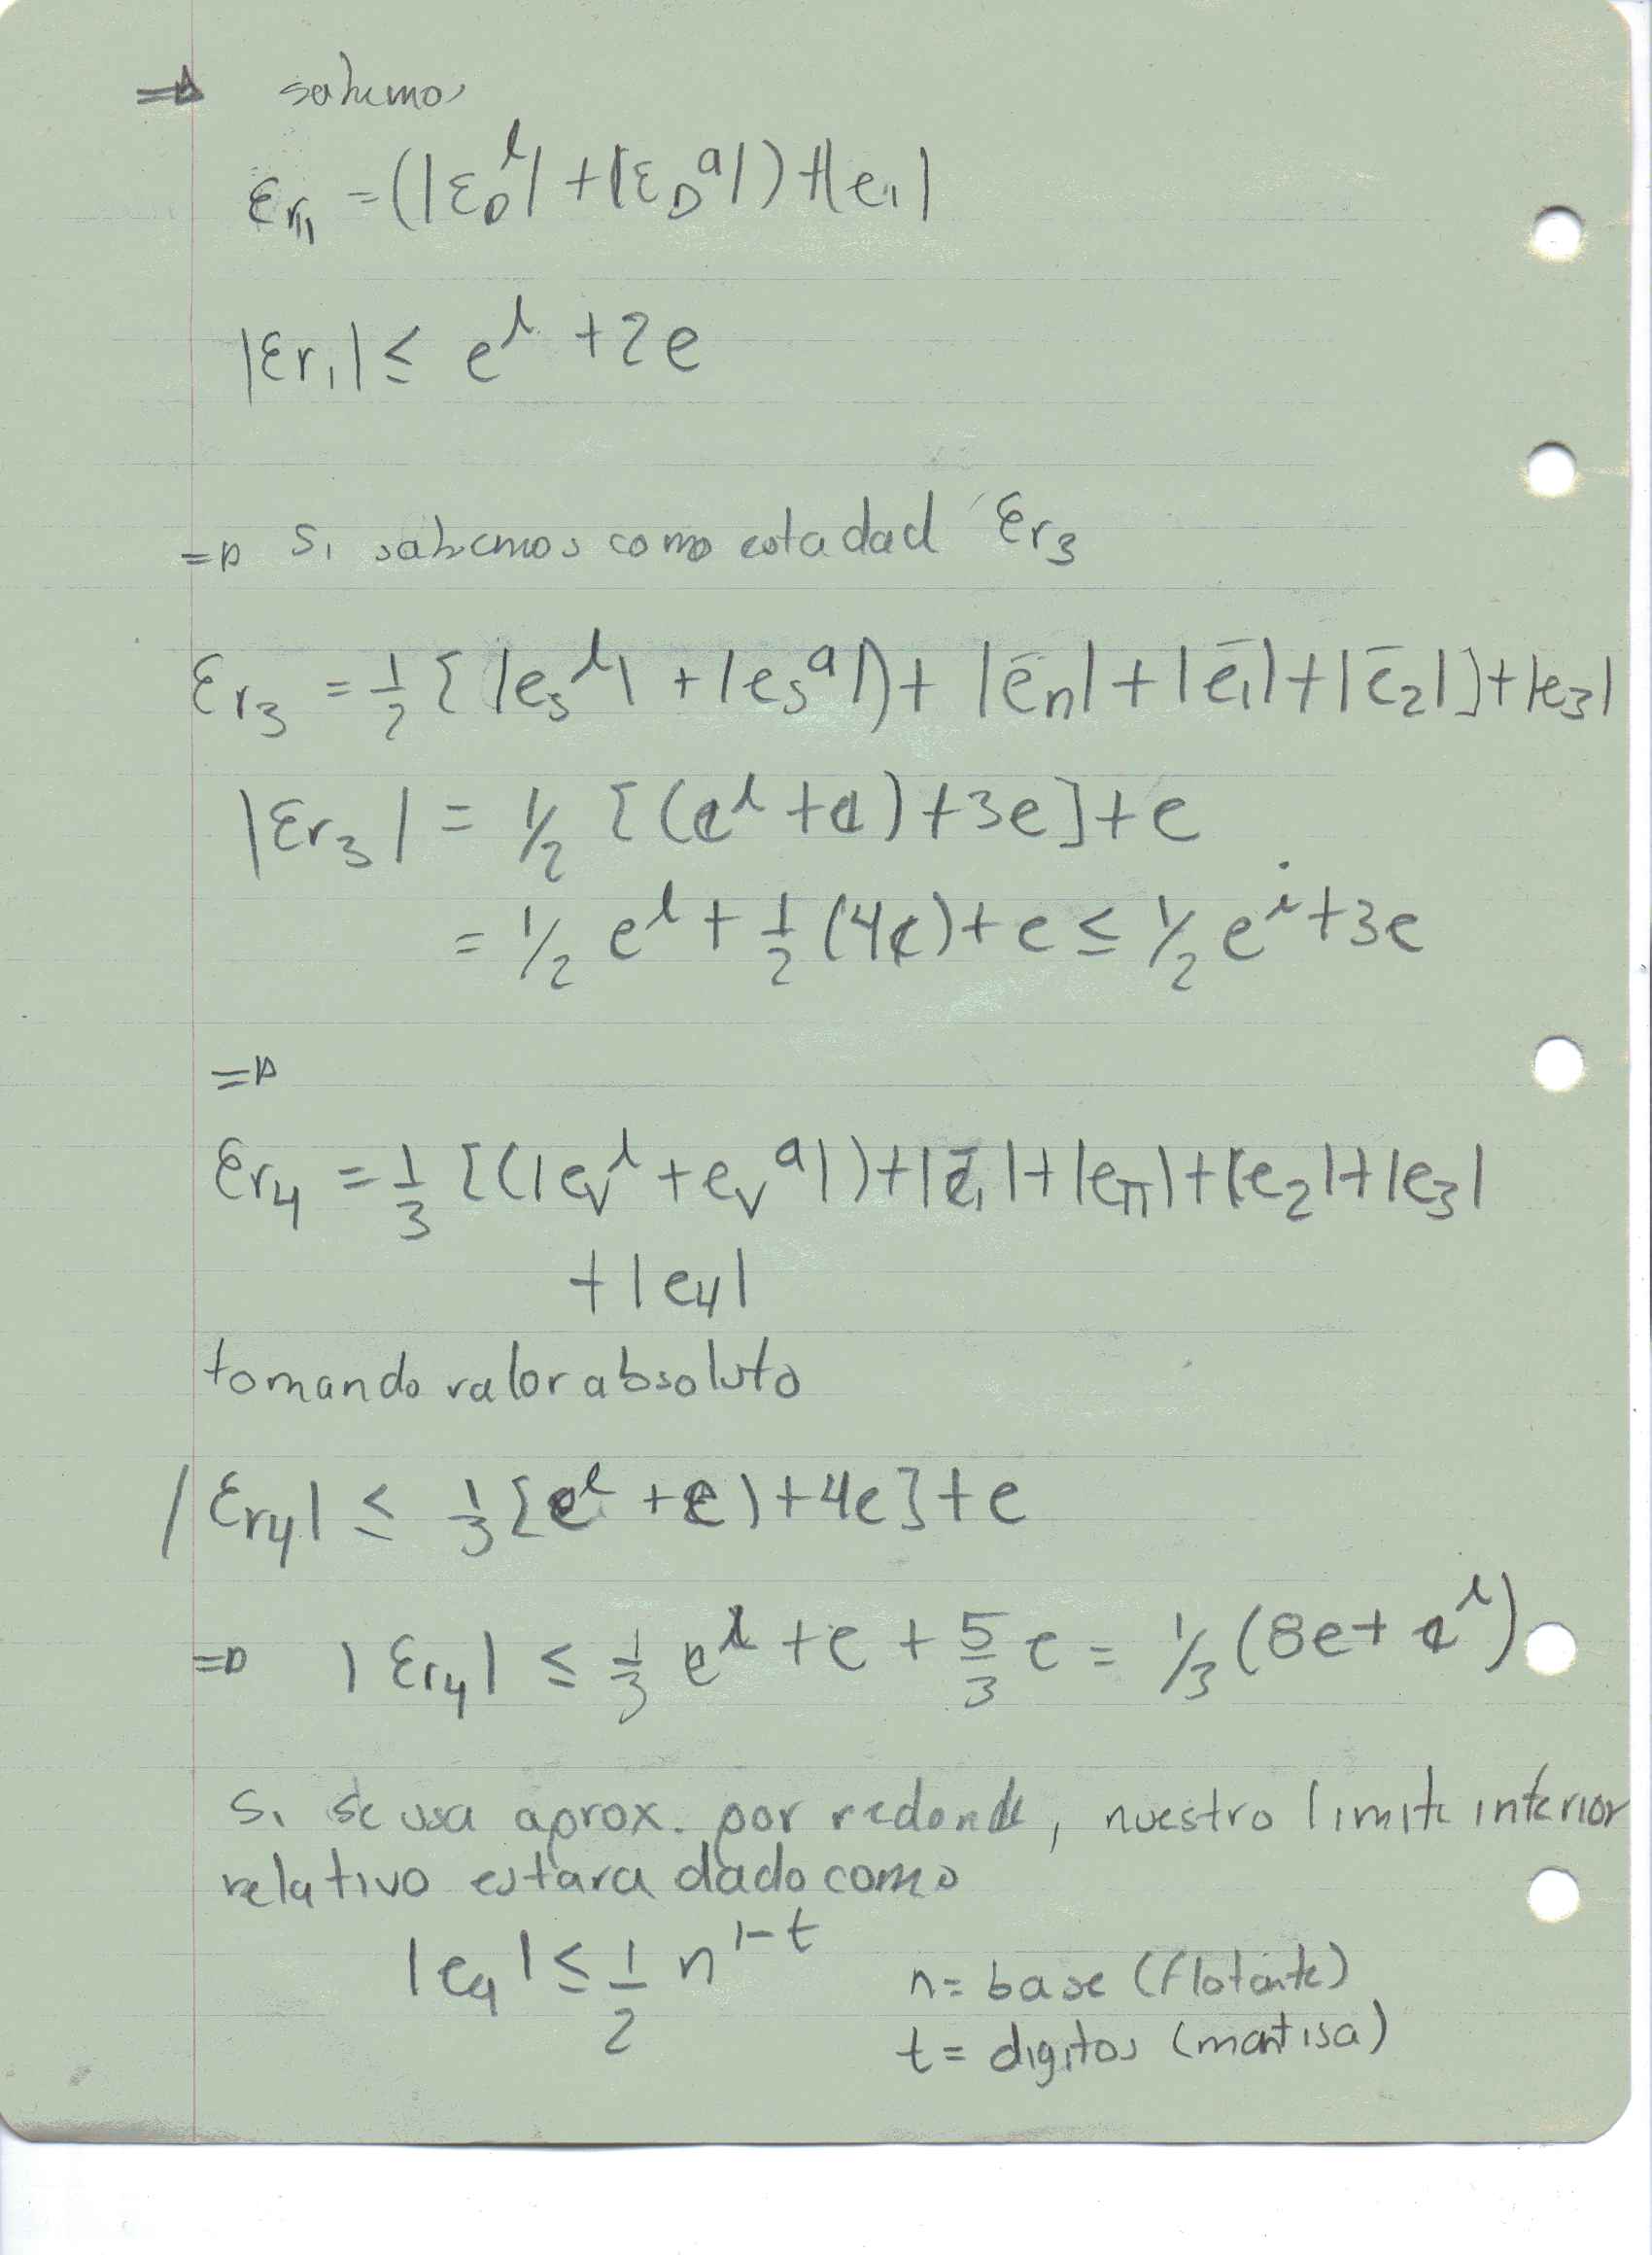 ⇒ sabemos
εr₁ = (|ε_D^i| + |ε_D^a|) + |e₁|
|εr₁| ≤ e^i + 2e
⇒ Si sabemos como esta dad εr₃
εr₃ = 1/2 [ |e_s^i| + |e_s^a|) + |e̅_π| + |e̅₁| + |e̅₂| ] + |e₃|
|εr₃| = 1/2 [(e^i + e) + 3e] + e
= 1/2 e^i + 1/2 (4e) + e ≤ 1/2 e^i + 3e
⇒
εr₄ = 1/3 [(|e_v^i + e_v^a|) + |e̅₁| + |e_π| + |e₂| + |e₃|
+ |e₄|
tomando valor absoluto
|εr₄| ≤ 1/3 [e^i + e) + 4e] + e
⇒ |εr₄| ≤ 1/3 e^i + e + 5/3 e = 1/3 (8e + e^i)
Si se usa aprox. por redond, nuestro limite inferior
relativo estara dado como
|e_a| ≤ 1/2 n^{1-t}
n = base (flotante)
t = digitos (mantisa)